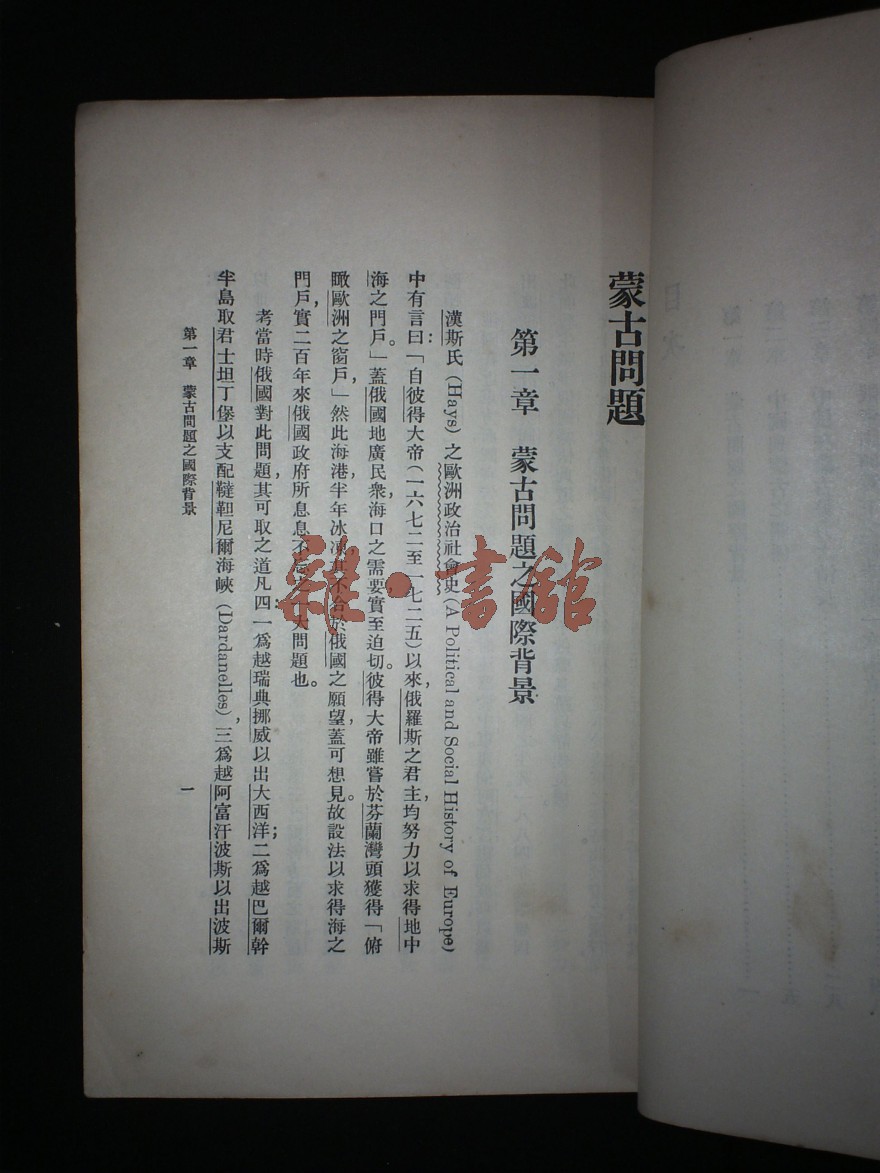 蒙古問題
第一章　蒙古問題之國際背景
漢斯氏（Hays）之歐洲政治社會史（A Political and Social History of Europe）
中有言曰：「自彼得大帝（一六七二至一七二五）以來，俄羅斯之君主，均努力以求得地中
海之門戶。」蓋俄國地廣民衆，海口之需要實至迫切。彼得大帝雖嘗於芬蘭灣頭獲得「俯
瞰歐洲之窗戶」，然此海港，半年冰凍，其不合於俄國之願望，蓋可想見。故設法以求得海之
門戶，實二百年來俄國政府所息息不忘之大問題也。
考當時俄國對此問題，其可取之道凡四：一爲越瑞典挪威以出大西洋；二爲越巴爾幹
半島取君士坦丁堡以支配韃靼尼爾海峽（Dardanelles），三爲越阿富汗波斯以出波斯
第一章　蒙古問題之國際背景
一
雜·書舘
目次